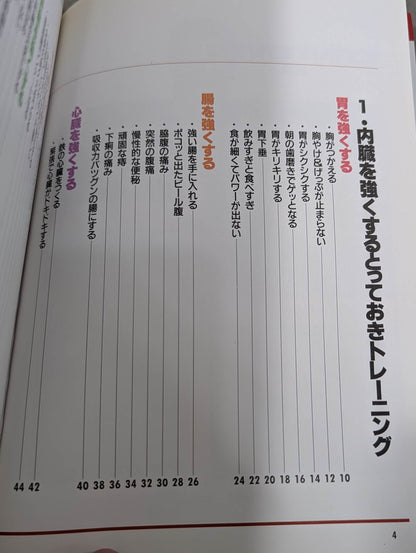 1・内臓を強くするとっておきトレーニング
胃を強くする
・胸がつかえる 10
・胸やけ&げっぷが止まらない 12
・胃がシクシクする 14
・朝の歯磨きでゲッとなる 16
・胃がキリキリする 18
・胃下垂 20
・飲みすぎと食べすぎ 22
・食が細くてパワーが出ない 24
腸を強くする
・強い腸を手に入れる 26
・ポコッと出たビール腹 28
・脇腹の痛み 30
・突然の腹痛 32
・慢性的な便秘 34
・頑固な痔 36
・下痢の痛み 38
・吸収力バツグンの腸にする 40
心臓を強くする
・鉄の心臓をつくる 42
・緊張と心臓がドキドキする 44
4